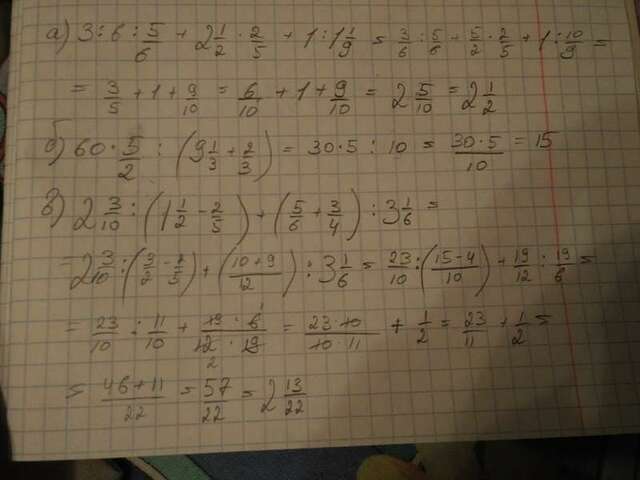 а) 3 : 6 : 5/6 + 2 1/2 · 2/5 + 1 : 1 1/9 = 3/6 : 5/6 + 5/2 · 2/5 + 1 : 10/9 =
= 3/5 + 1 + 9/10 = 6/10 + 1 + 9/10 = 2 5/10 = 2 1/2
б) 60 · 5/2 : (9 1/3 + 2/3) = 30 · 5 : 10 = 30 · 5/10 = 15
в) 2 3/10 : (1 1/2 - 2/5) + (5/6 + 3/4) : 3 1/6 =
= 2 3/10 : (3/2 - 2/5) + (10 + 9/12) : 3 1/6 = 23/10 : (15 - 4/10) + 19/12 : 19/6 =
= 23/10 : 11/10 + 19 · 6 1/12 · 19 2 = 23 · 10/10 · 11 + 1/2 = 23/11 + 1/2 =
= 46 + 11/22 = 57/22 = 2 13/22